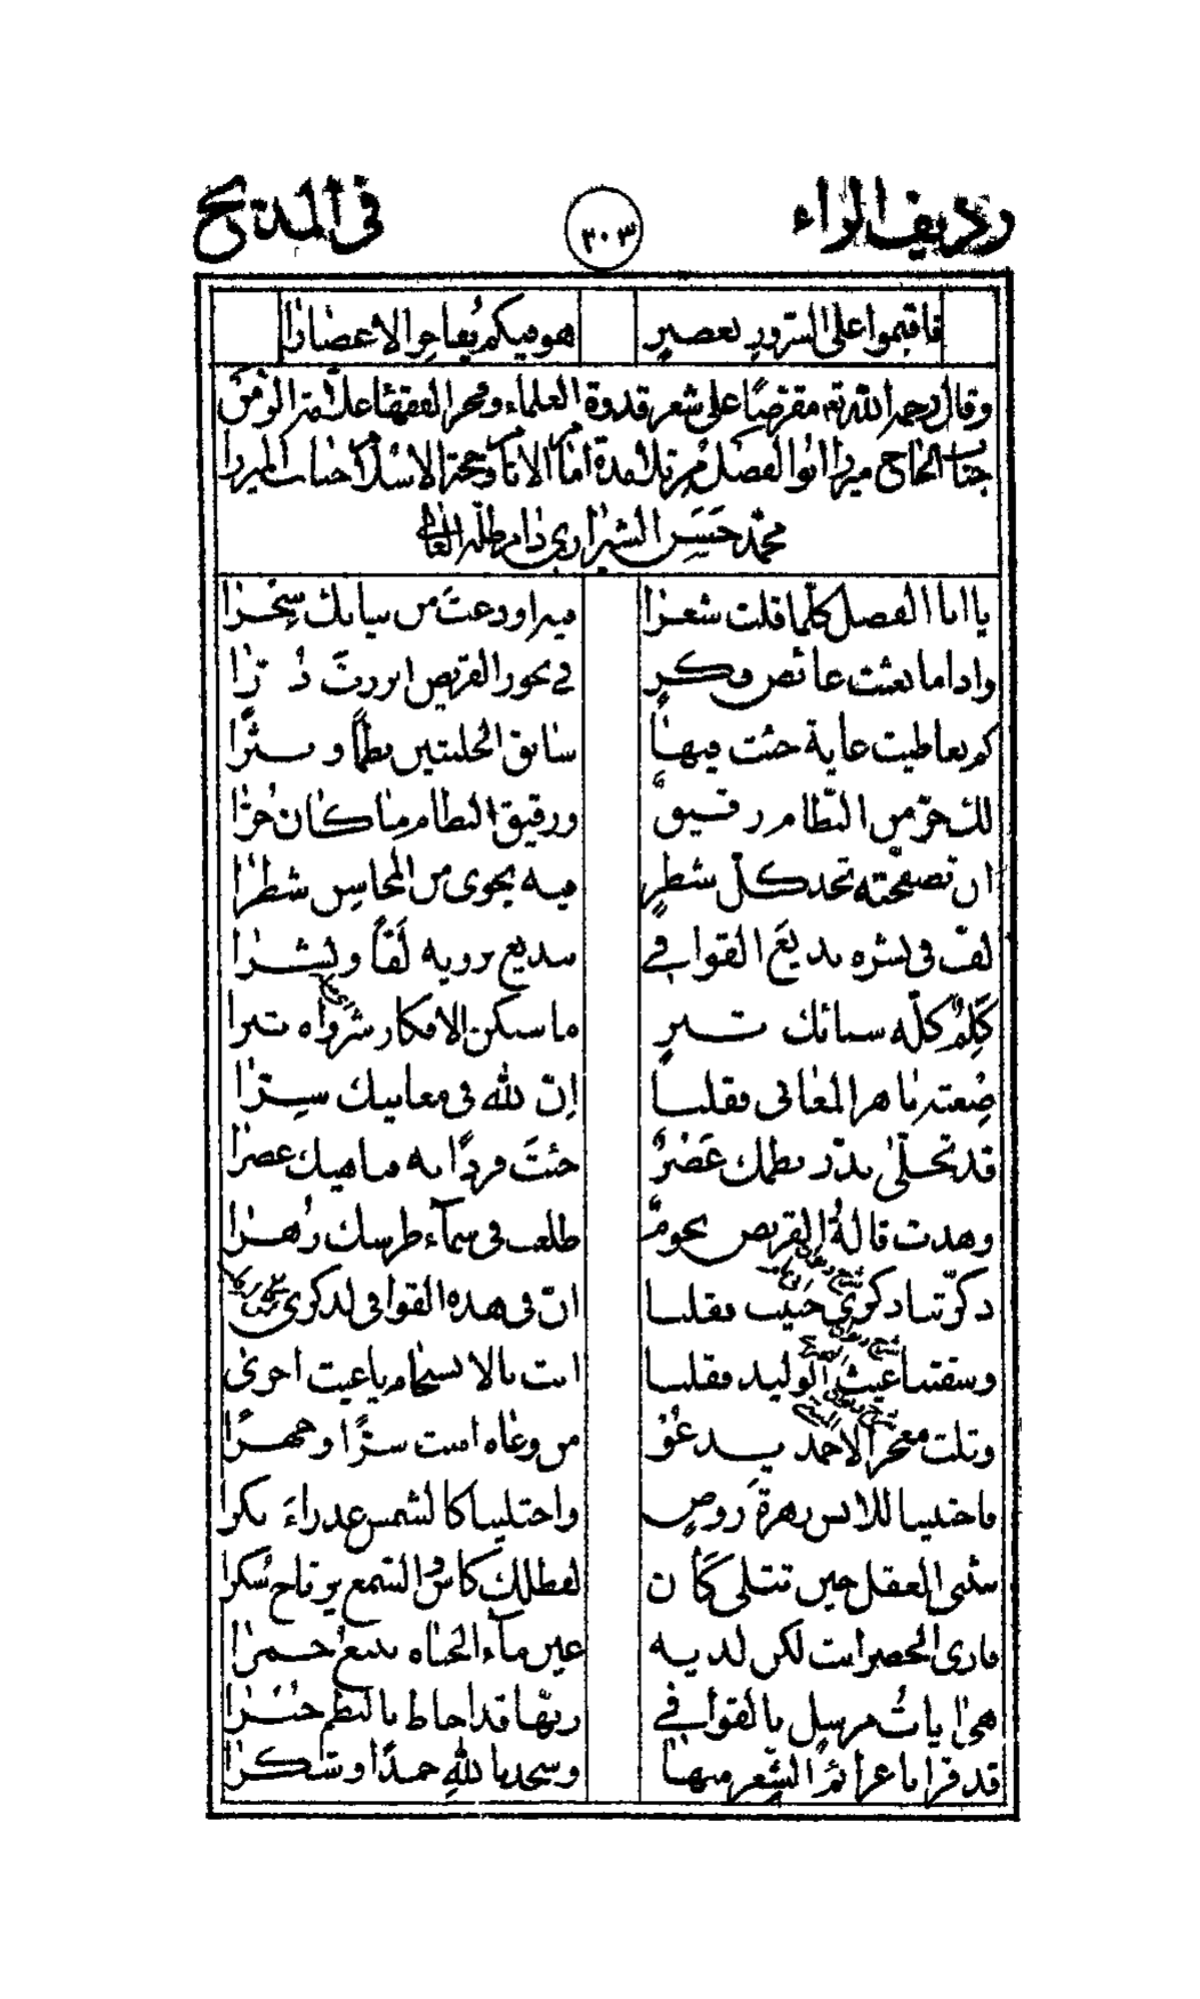 رديف الراء ٣٠٣ في المديح
فاقيموا على السرور بعصرٍ هو فيكم يُفاخر الاعصارا
وقال رحمه الله تعـ مقرضًا على شعر قدوة العلماء وفخر الفقهاء علّامة الزمن
جناب الحاج ميرزا ابو الفضل من تلامذة امام الانام وحجة الاسلام جناب الميرزا
محمّد حَسَن الشيرازي دام ظلّه العالي
يا ابا الفضل كلّما قلت شعرًا فيه اودعتَ من بيانك سِحْرًا
واذا ما بعثت غائص فكرٍ في بحور القريض ابرزتَ دُرّا
كم تعاطيت غاية جئت فيها سابق الحلبتين نظمًا ونثرًا
لك حرّ من النظام رقيقٌ ورقيق النظام ما كان حُرّا
ان تصفّحته تجد كلّ شطرٍ فيه يحوى من المحاسن شطرًا
لفّ في نشره بديعَ القوافي ببديع يرويه لَفّاً ونشرًا
كَلِمٌ كلّه سبائك تبرٍ ما سبكن الافكار شرواه تبرا
ضِعتَ يا ماهر المعاني فقلنا اِنّ لله في معانيك سِرّا
قد تحلّى بدرّ نظمك عَصْرٌ جئتَ فردًا به فناهيك عصرًا
وهدت قالة القريض نجومٌ طلعت في سمآء طرسك زُهرًا
ذكّرتنا ذكرى حبيب فقلنا انّ في هذه القوافي لذكرى
وسقتنا غيث الوليد فقلنا انت بالانسجام يا غيث احرى
وتلت معجز الاحمد يدعو من وعاه امنت سرًّا وجهرًا
فاجتنينا للانس زهرةَ روضٍ واجتلينا كالشمس عذراءَ بكرا
ينثني العقل حين تتلى كأن لفظك كاس والسّمع يرتاح سُكرا
فارى الخصر انت لكن لديه عين مآء الحياه تنبع خمرًا
هي آياتُ مرسل بالقوافي ربّها قد احاط بالنظم خُبْرًا
قد قرأنا عزائم الشعر منها وسجدنا لله حمدًا وشكرًا